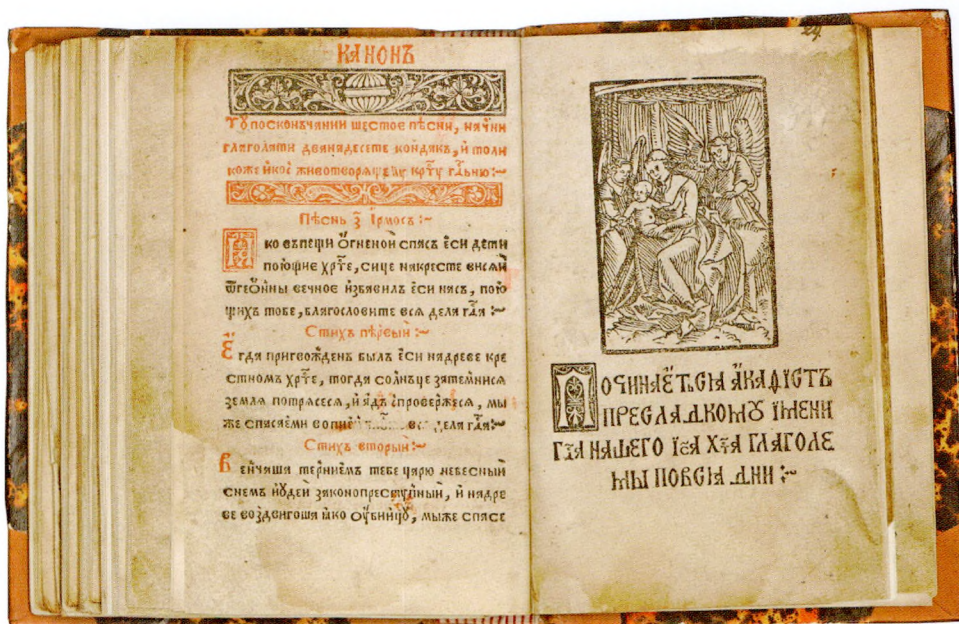 КАНОНЪ
Ту посконъчании шестое песни, начни
глаголяти дванадесете кондакъ, и толи
коже икос животворящему крту гдьню:~
Песнь з Ірмосъ:~
Яко въпещи огненой спасъ еси дети
поющие хрте, сице накресте висяи
ѿгеоины вечное избавилъ еси насъ, пою
щихъ тобе, благословите вся дела гдя:~
Стихъ первыи:~
Егда пригвожденъ былъ еси надреве кре
стномъ хрте, тогда солнъце затемнися
земля потрясеся, и адъ испровержеся, мы
же спасаеми вопием вся дела гдя:~
Стихъ вторыи:~
Венчаша терниемъ тебе царю небесныи
снемъ иудеи законопреступныи, и надре
ве воздвигоша яко оубиицу, мыже спасе
24
ПОЧИНАЕТЬСЯ АКАФІСТЪ
ПРЕСЛАДКОМУ ІМЕНИ
ГДА НАШЕГО ІСА ХТА ГЛАГОЛЕ
МЫ ПОВСЯ ДНИ :~